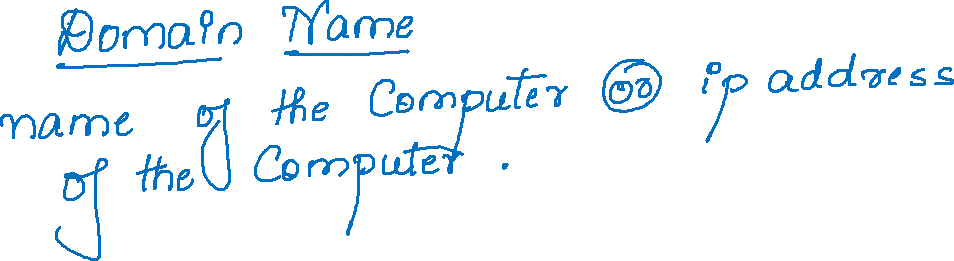 Domain Name
name of the Computer or ip address
of the Computer.